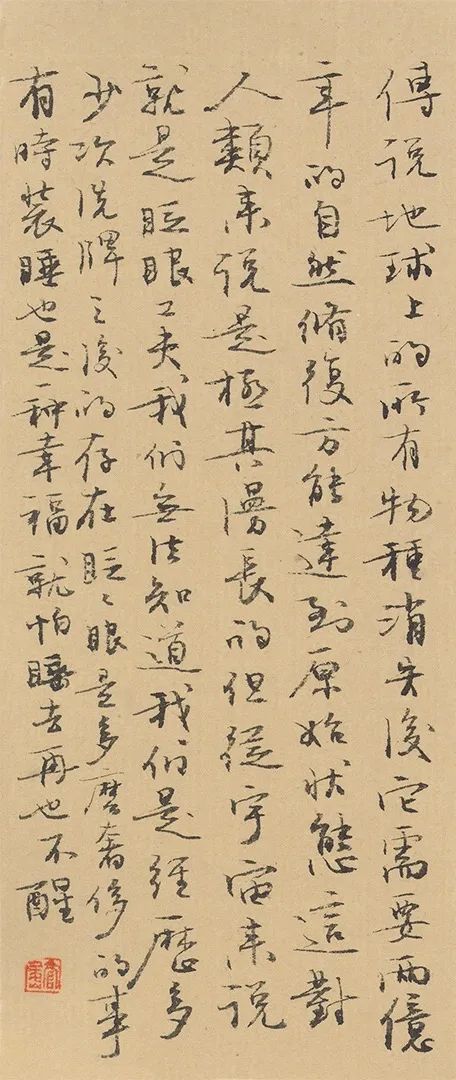 傳说地球上的所有物種消失後它需要两億
年的自然脩復方能達到原始狀態這對
人類来说是極其漫長的但從宇宙来说
就是眨眼工夫我们無法知道我们是經歷多
少次洗牌之後的存在眨眨眼是多麼奢侈的事
有時裝睡也是一种幸福就怕睡去再也不醒